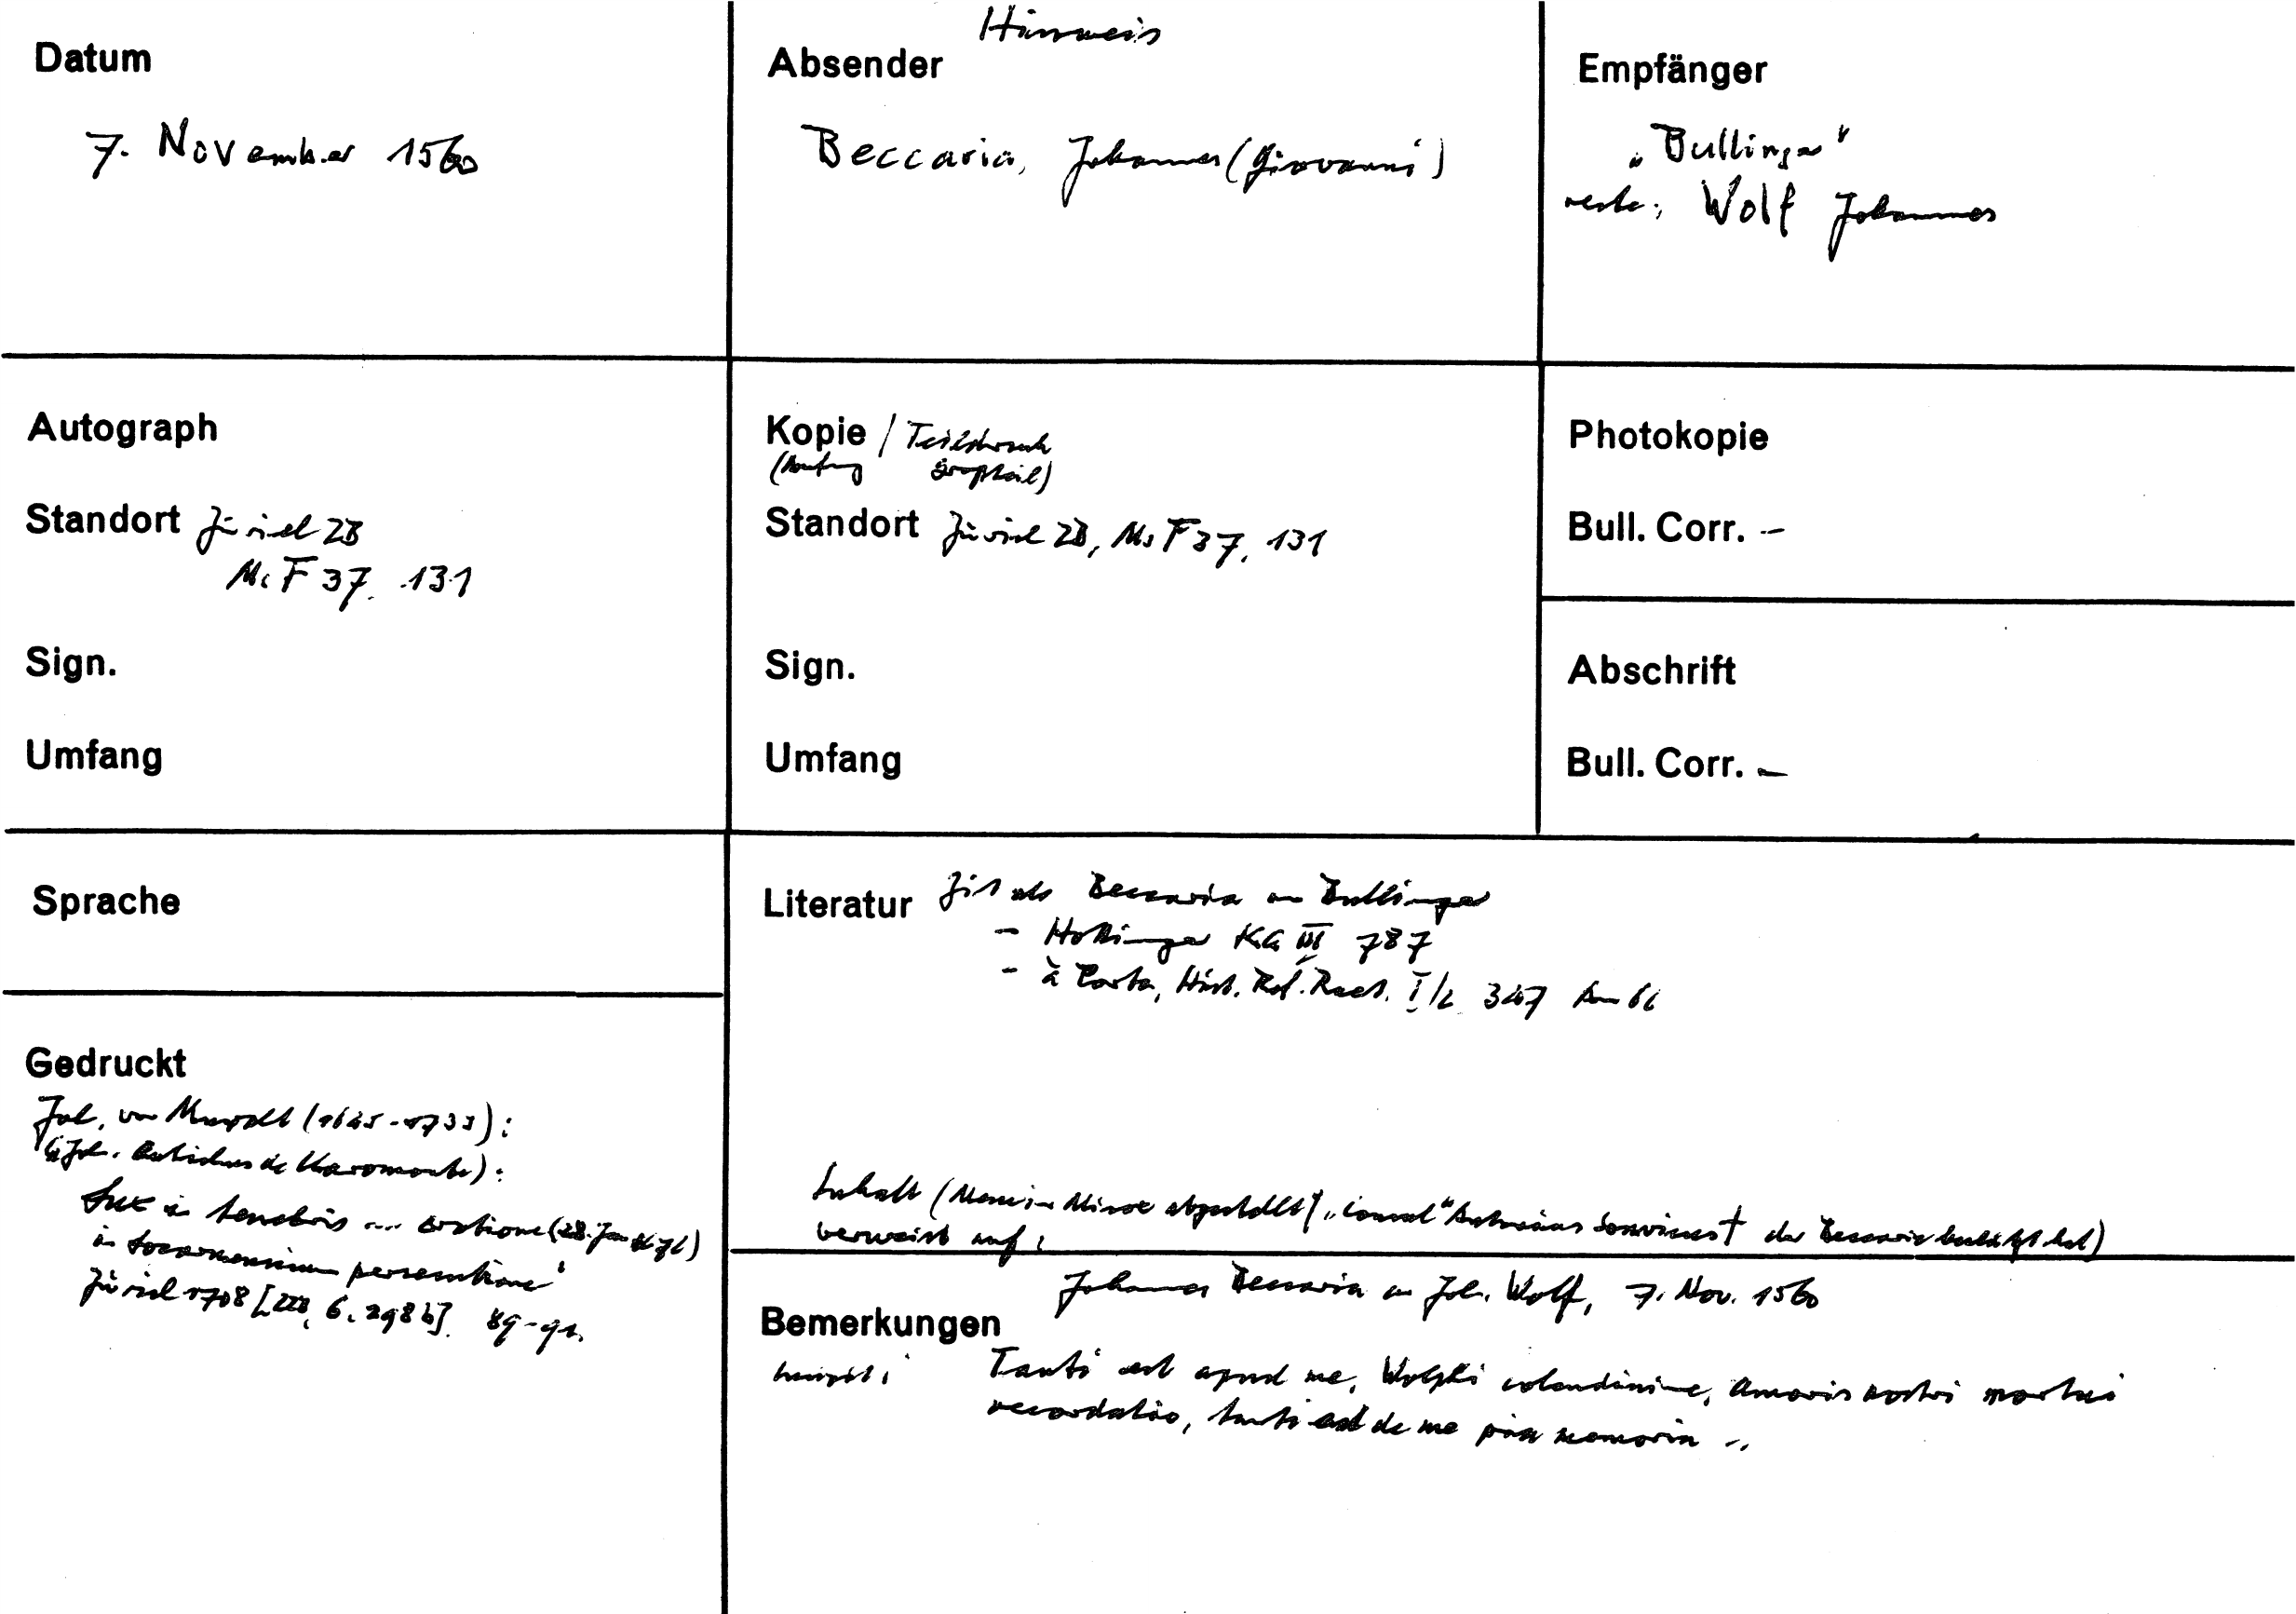 Hinweis
Datum
7. November 1560
Absender
Beccaria, Johannes (Giovanni)
Empfänger
„Bullinger"
recte: Wolf Johannes
Autograph
Standort Zürich ZB
Ms F 37, 131
Sign.
Umfang
Kopie / Teildruck
(Anfang Großteil)
Standort Zürich ZB, Ms F 37, 131
Sign.
Umfang
Photokopie
Bull. Corr. –
Abschrift
Bull. Corr. –
Sprache
Gedruckt
Joh. von Muralt (1645-1733):
(Joh. de Claromonte):
Lux in tenebris ... oratione (28. Jan )
in Locarnensium persecutione"
Zürich 1708 [ZB, 6. 298 b]. 89-91.
Literatur Zit als Beccaria an Bullinger
- Hottinger KG III 787
- à Porta, Hist. Ref. Raet. I/2 347 Anm
Inhalt ( in Misox abgestellt) der Beccaria hat)
verweist auf:
Johannes Beccaria an Joh. Wolf, 7. Nov. 1560
Bemerkungen
Incipit: Tanti est apud me, Wolphi colendissime, amoris nostri mortui
recordatio, tanti est de me pia memoria ..